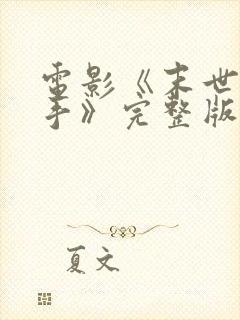 電影《末世
手》完整版
夏文